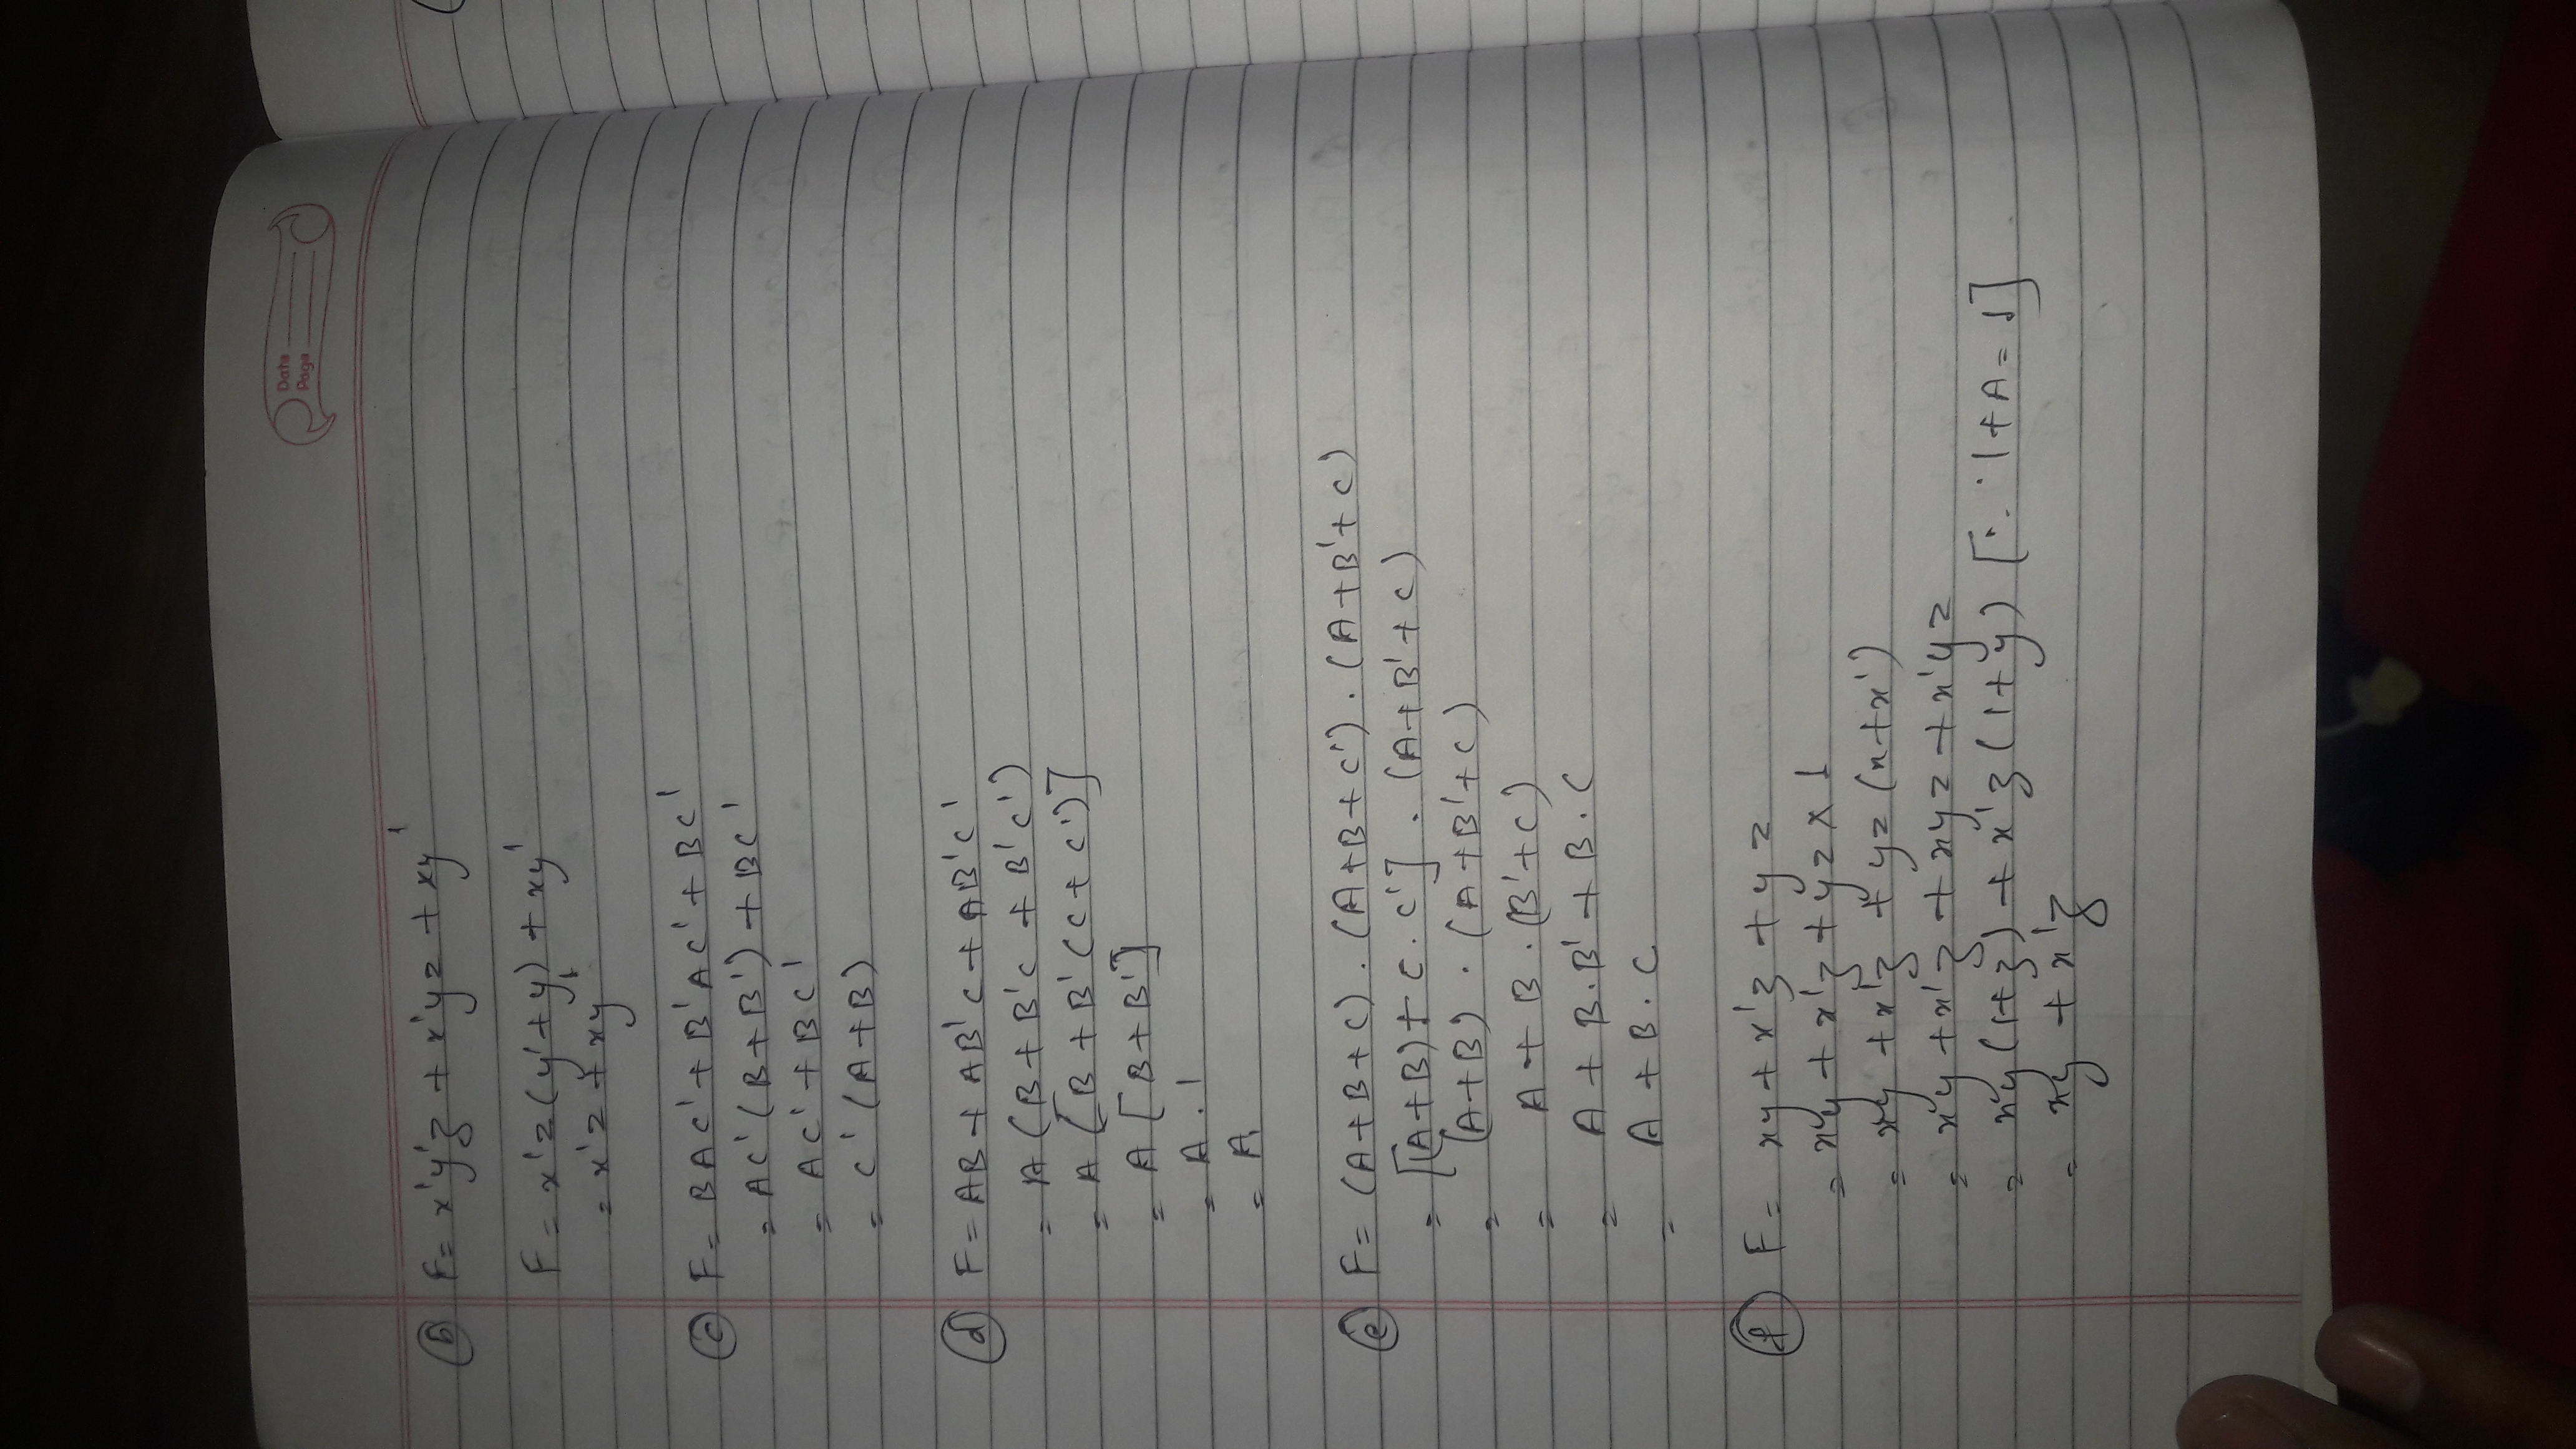 Date
Page
(b) F = x'y'z + x'yz + xy'
F = x'z(y'+y) + xy'
= x'z + xy'
(c) F = BAC' + B'AC' + BC'
= AC'(B+B') + BC'
= AC' + BC'
= C'(A+B)
(d) F = AB + AB'C + AB'C'
= A(B + B'C + B'C')
= A[B + B'(C+C')]
= A[B+B']
= A.1
= A
(e) F = (A+B+C).(A+B+C').(A+B'+C)
= [(A+B)+C.C'].(A+B'+C)
= (A+B).(A+B'+C)
= A+B.(B'+C)
= A+B.B'+B.C
= A+B.C
(f) F = xy + x'z + yz
= xy + x'z + yz x 1
= xy + x'z + yz(x+x')
= xy + x'z + xyz + x'yz
= xy(1+z) + x'z(1+y) [∵ 1+A=1]
= xy + x'z